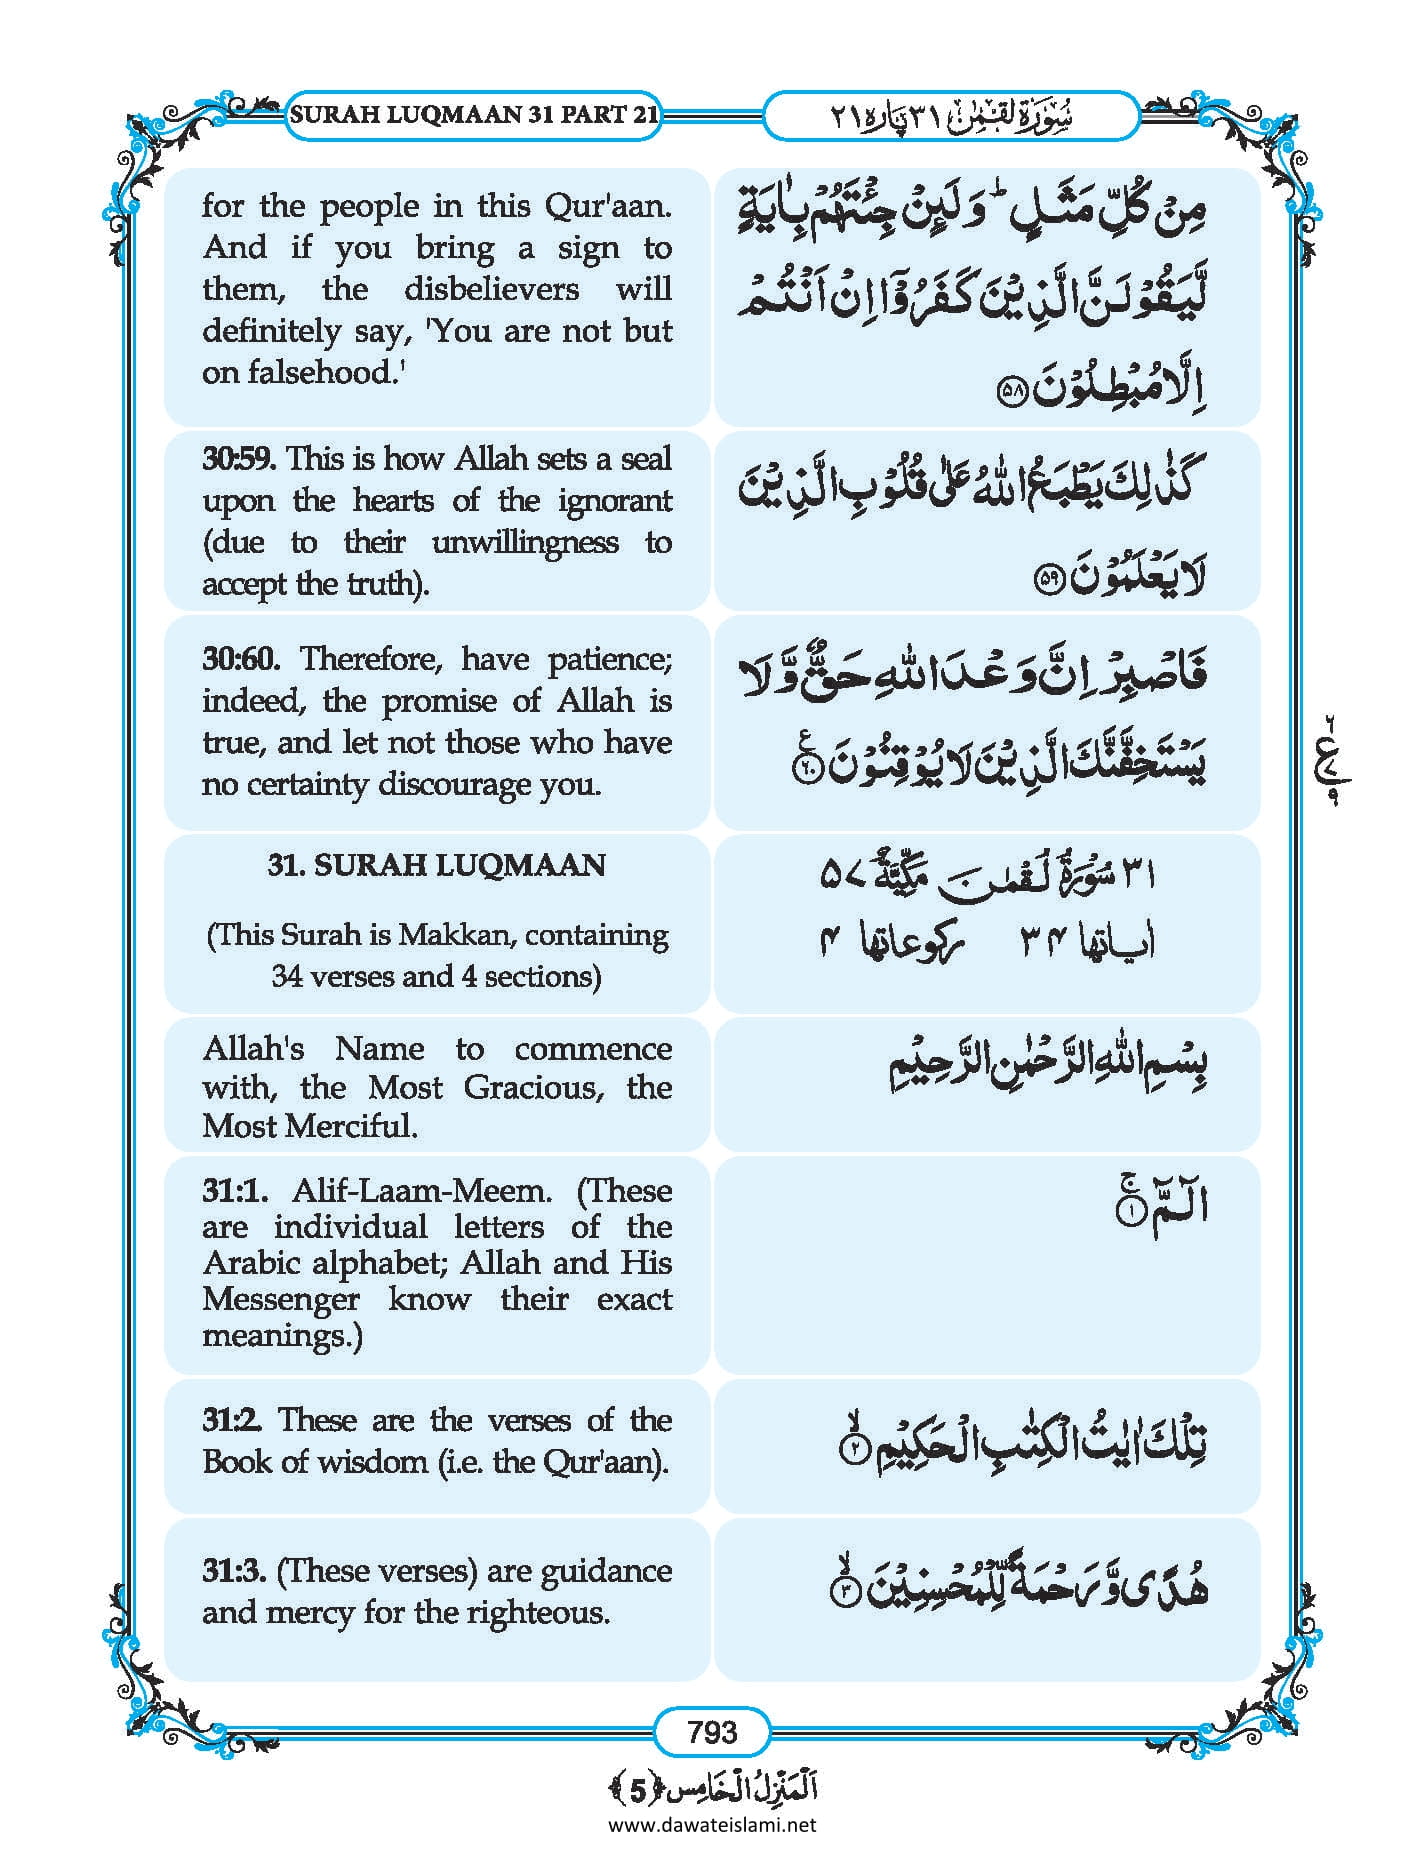 SURAH LUQMAAN 31 PART 21
سُوْرَةُ لُقْمٰنَ ٣١ پارہ ٢١
for the people in this Qur'aan.
And if you bring a sign to
them, the disbelievers will
definitely say, 'You are not but
on falsehood.'
مِنْ كُلِّ مَثَلٍ ؕ وَ لَىِٕنْ جِئْتَهُمْ بِاٰیَةٍ
لَّیَقُوْلَنَّ الَّذِیْنَ كَفَرُوْۤا اِنْ اَنْتُمْ
اِلَّا مُبْطِلُوْنَ ﴿۵۸﴾
30:59. This is how Allah sets a seal
upon the hearts of the ignorant
(due to their unwillingness to
accept the truth).
كَذٰلِكَ یَطْبَعُ اللّٰهُ عَلٰى قُلُوْبِ الَّذِیْنَ
لَا یَعْلَمُوْنَ ﴿۵۹﴾
30:60. Therefore, have patience;
indeed, the promise of Allah is
true, and let not those who have
no certainty discourage you.
فَاصْبِرْ اِنَّ وَعْدَ اللّٰهِ حَقٌّ وَّ لَا
یَسْتَخِفَّنَّكَ الَّذِیْنَ لَا یُوْقِنُوْنَ ﴿۶۰﴾ ع
٦
ع ٧
٩
31. SURAH LUQMAAN
(This Surah is Makkan, containing
34 verses and 4 sections)
٣١ سُوْرَةُ لُقْمٰنَ مَكِّیَّةٌ ۵۷
اٰیاتها ۳۴ رکوعاتها ۴
Allah's Name to commence
with, the Most Gracious, the
Most Merciful.
بِسْمِ اللّٰهِ الرَّحْمٰنِ الرَّحِیْمِ
31:1. Alif-Laam-Meem. (These
are individual letters of the
Arabic alphabet; Allah and His
Messenger know their exact
meanings.)
الٓمّٓ ۚ﴿۱﴾
31:2. These are the verses of the
Book of wisdom (i.e. the Qur'aan).
تِلْكَ اٰیٰتُ الْكِتٰبِ الْحَكِیْمِ ۙ﴿۲﴾
31:3. (These verses) are guidance
and mercy for the righteous.
هُدًى وَّ رَحْمَةً لِّلْمُحْسِنِیْنَ ۙ﴿۳﴾
793
اَلْمَنْزِلُ الْخَامِس ﴿5﴾
www.dawateislami.net